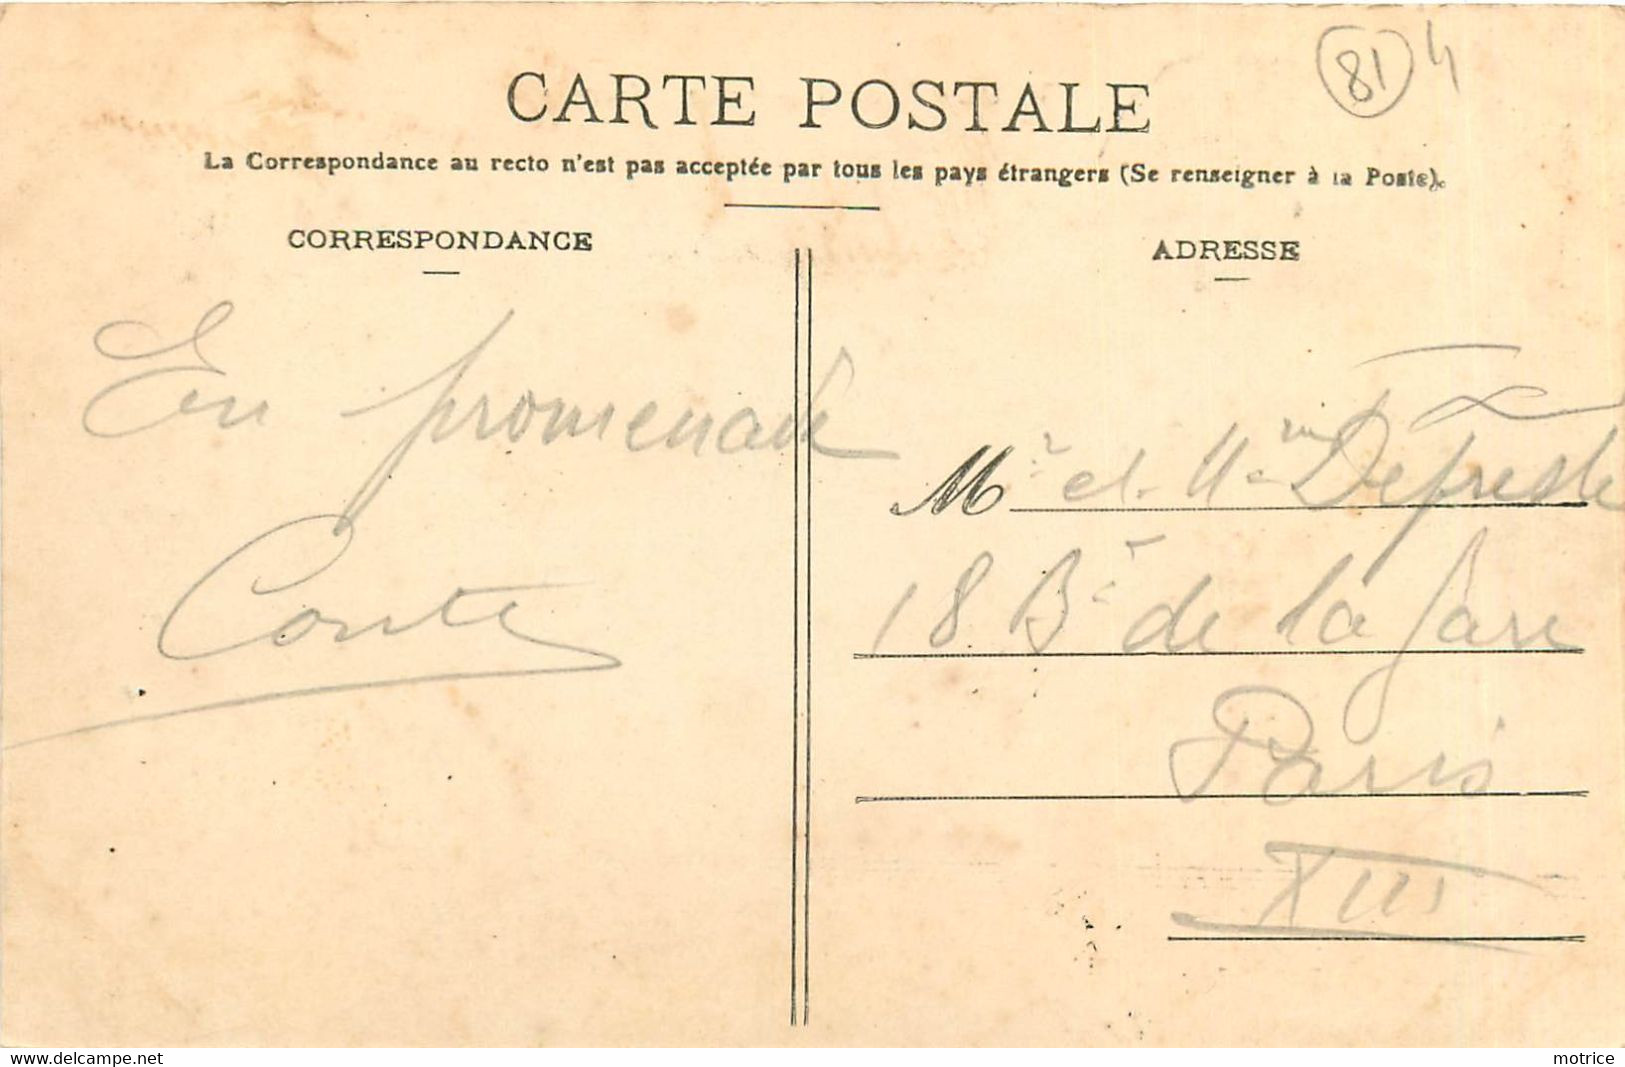 81 4
CARTE POSTALE
La Correspondance au recto n'est pas acceptée par tous les pays étrangers (Se renseigner à la Poste).
CORRESPONDANCE
En promenade
Conte
ADRESSE
Mr et Mme
18 Bd de la Gare
Paris
XIII
www.delcampe.net
motrice